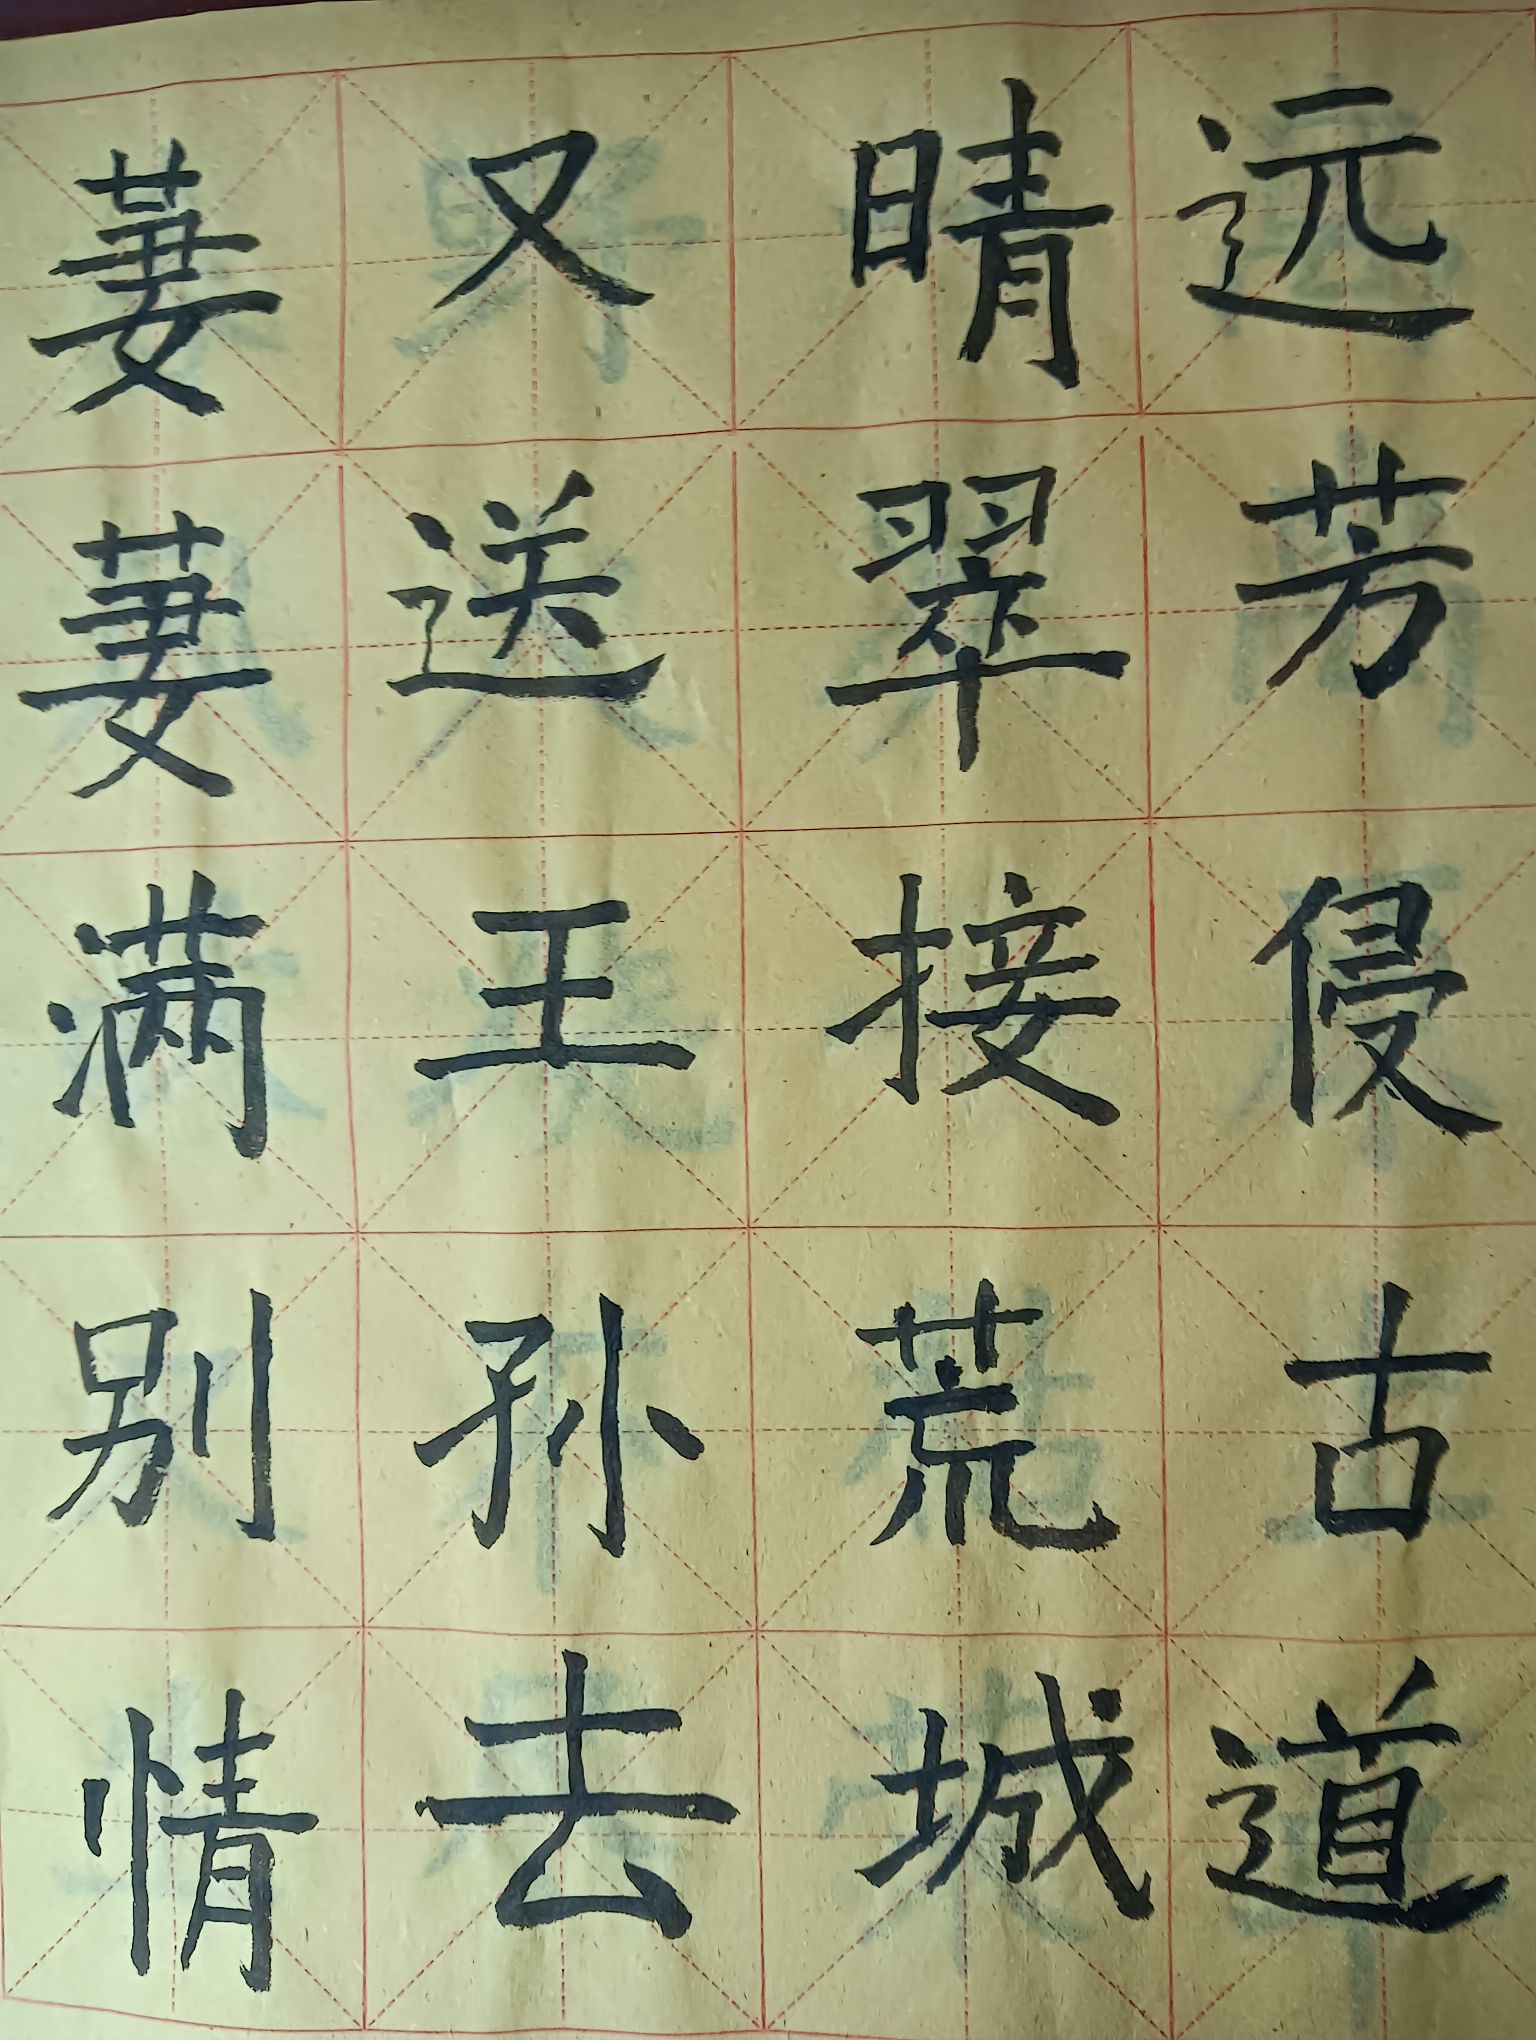 远芳侵古道
晴翠接荒城
又送王孙去
萋萋满别情